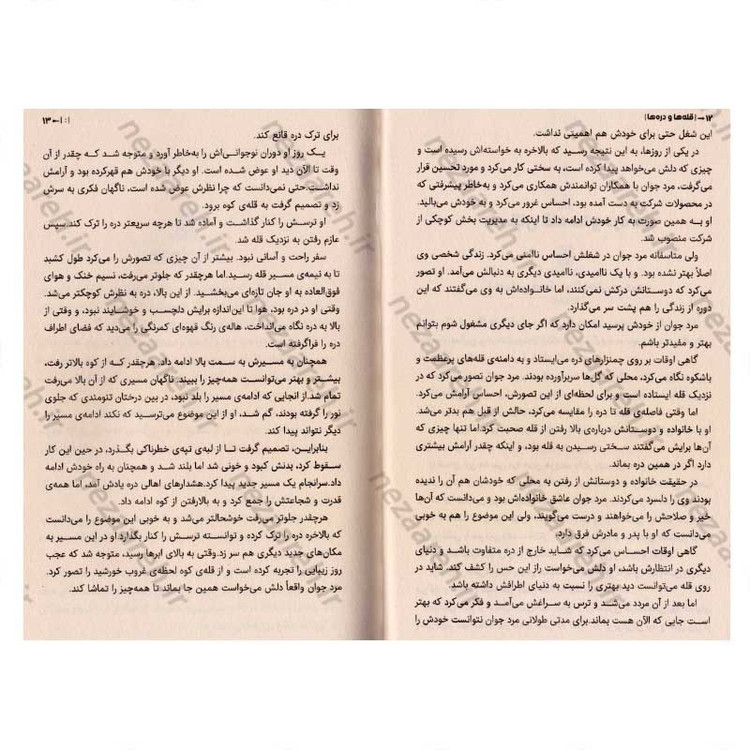 ۱۲ — | قله‌ها و دره‌ها |
این شغل حتی برای خودش هم اهمیتی نداشت.
در یکی از روزها، به این نتیجه رسید که بالاخره به خواسته‌اش رسیده است و
چیزی که دلش می‌خواهد پیدا کرده است، به سختی کار می‌کرد و مورد تحسین قرار
می‌گرفت، مرد جوان با همکاران توانمندش همکاری می‌کرد و به‌خاطر پیشرفتی که
در محصولات شرکت به دست آمده بود، احساس غرور می‌کرد و به خودش می‌بالید.
او به همین صورت به کار خودش ادامه داد تا اینکه به مدیریت بخش کوچکی از
شرکت منصوب شد.
ولی متاسفانه مرد جوان در شغلش احساس ناامنی می‌کرد. زندگی شخصی وی
اصلاً بهتر نشده بود. و با یک ناامیدی، ناامیدی دیگری به دنبالش می‌آمد. او تصور
می‌کرد که دوستانش درکش نمی‌کنند، اما خانواده‌اش به وی می‌گفتند که این
دوره از زندگی را هم پشت سر می‌گذارد.
مرد جوان از خودش پرسید امکان دارد که اگر جای دیگری مشغول شوم بتوانم
بهتر و مفیدتر باشم.
گاهی اوقات بر روی چمنزارهای دره می‌ایستاد و به دامنه‌ی قله‌های پرعظمت و
باشکوه نگاه می‌کرد، محلی که گل‌ها سربرآورده بودند. مرد جوان تصور می‌کرد که در
نزدیک قله ایستاده است و برای لحظه‌ای از این تصورش، احساس آرامش می‌کرد.
اما وقتی فاصله‌ی قله تا دره را مقایسه می‌کرد، حالش از قبل هم بدتر می‌شد.
او با خانواده و دوستانش درباره‌ی بالا رفتن از قله صحبت کرد.اما تنها چیزی که
آن‌ها برایش می‌گفتند سختی رسیدن به قله بود، و اینکه چقدر آرامش بیشتری
دارد اگر در همین دره بماند.
در حقیقت خانواده و دوستانش از رفتن به محلی که خودشان هم آن را ندیده
بودند وی را دلسرد می‌کردند. مرد جوان عاشق خانواده‌اش بود و می‌دانست که آن‌ها
خیر و صلاحش را می‌خواهند و درست می‌گویند، ولی این موضوع را هم به خوبی
می‌دانست که او با پدر و مادرش فرق دارد.
گاهی اوقات احساس می‌کرد که شاید خارج از دره متفاوت باشد و دنیای
دیگری در انتظارش باشد، او دلش می‌خواست راز این حس را کشف کند. شاید در
روی قله می‌توانست دید بهتری را نسبت به دنیای اطرافش داشته باشد.
اما بعد از آن مردد می‌شد و ترس به سراغش می‌آمد و فکر می‌کرد که بهتر
است جایی که الآن هست بماند.برای مدتی طولانی مرد جوان نتوانست خودش را
۱۳
برای ترک دره قانع کند.
یک روز او دوران نوجوانی‌اش را به‌خاطر آورد و متوجه شد که چقدر از آن
وقت تا الآن دید او عوض شده است. او دیگر با خودش هم قهرکرده بود و آرامش
نداشت.حتی نمی‌دانست که چرا نظرش عوض شده است، ناگهان فکری به سرش
زد و تصمیم گرفت به قله‌ی کوه برود.
او ترسش را کنار گذاشت و آماده شد تا هرچه سریعتر دره را ترک کند.سپس
عازم رفتن به نزدیک قله شد.
سفر راحت و آسانی نبود. بیشتر از آن چیزی که تصورش را می‌کرد طول کشید
تا به نیمه‌ی مسیر قله رسید.اما هرچقدر که جلوتر می‌رفت، نسیم خنک و هوای
فوق‌العاده به او جان تازه‌ای می‌بخشید. از این بالا، دره به نظرش کوچکتر می‌شد.
وقتی او در دره بود، هوا تااین‌اندازه برایش دلچسب و خوشایند نبود، و وقتی از
بالا به دره نگاه می‌انداخت، هاله‌ی رنگ قهوه‌ای کمرنگی را می‌دید که فضای اطراف
دره را فراگرفته است.
همچنان به مسیرش به سمت بالا ادامه داد. هرچقدر که از کوه بالاتر رفت،
بیشتر و بهتر می‌توانست همه‌چیز را ببیند. ناگهان مسیری که از آن بالا می‌رفت
تمام شد.از آنجایی که ادامه‌ی مسیر را بلد نبود، در بین درختان تنومندی که جلوی
نور را گرفته بودند، گم شد، او از این موضوع می‌ترسید که نکند ادامه‌ی مسیر را
دیگر نتواند پیدا کند.
بنابراین، تصمیم گرفت تا از لبه‌ی تپه‌ی خطرناکی بگذرد، در حین این کار
سقوط کرد، بدنش کبود و خونی شد اما بلند شد و همچنان به راه خودش ادامه
داد.سرانجام یک مسیر جدید پیدا کرد.هشدارهای اهالی دره یادش آمد، اما همه‌ی
قدرت و شجاعتش را جمع کرد و به بالارفتن از کوه ادامه داد.
هرچقدر جلوتر می‌رفت خوشحالتر می‌شد و به خوبی این موضوع را می‌دانست
که بالاخره دره را ترک کرده و توانسته ترسش را کنار بگذارد.او در این مسیر به
مکان‌های جدید دیگری هم سر زد.وقتی به بالای ابرها رسید، متوجه شد که عجب
روز زیبایی را تجربه کرده است و از قله‌ی کوه لحظه‌ی غروب خورشید را تصور کرد.
مرد جوان واقعاً دلش می‌خواست همین جا بماند تا همه‌چیز را تماشا کند.
nezaafeh.ir